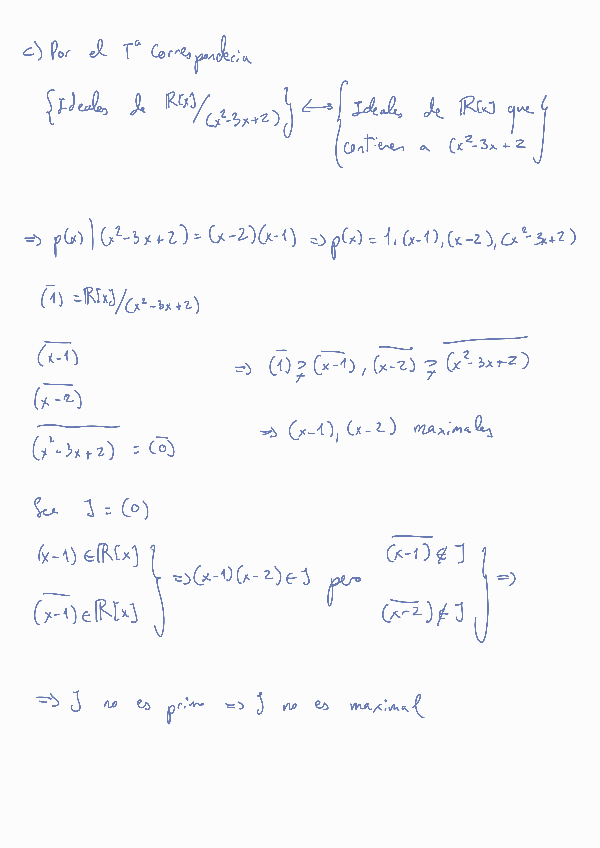 c) Por el Tª Correspondecia
{Ideales de ℝ[x]/(x²-3x+2)} ↔ {Ideales de ℝ[x] que
contienen a (x²-3x+2}
⇒ p(x) | (x²-3x+2) = (x-2)(x-1) ⇒ p(x) = 1, (x-1), (x-2), (x²-3x+2)
(1̅) = ℝ[x]/(x²-3x+2)
(x̅-̅1̅)
(x̅-̅2̅)
⇒ (1̅) ⊋ (x̅-̅1̅), (x̅-̅2̅) ⊋ (x̅²̅-̅3̅x̅+̅2̅)
(x̅²̅-̅3̅x̅+̅2̅) = (0̅)
⇒ (x-1), (x-2) maximales
Sea J = (0)
(x-1) ∈ ℝ[x]
(x̅-̅1̅) ∈ ℝ[x]
} ⇒ (x-1)(x-2) ∈ J pero
(x̅-̅1̅) ∉ J
(x̅-̅2̅) ∉ J
} ⇒
⇒ J no es primo ⇒ J no es maximal